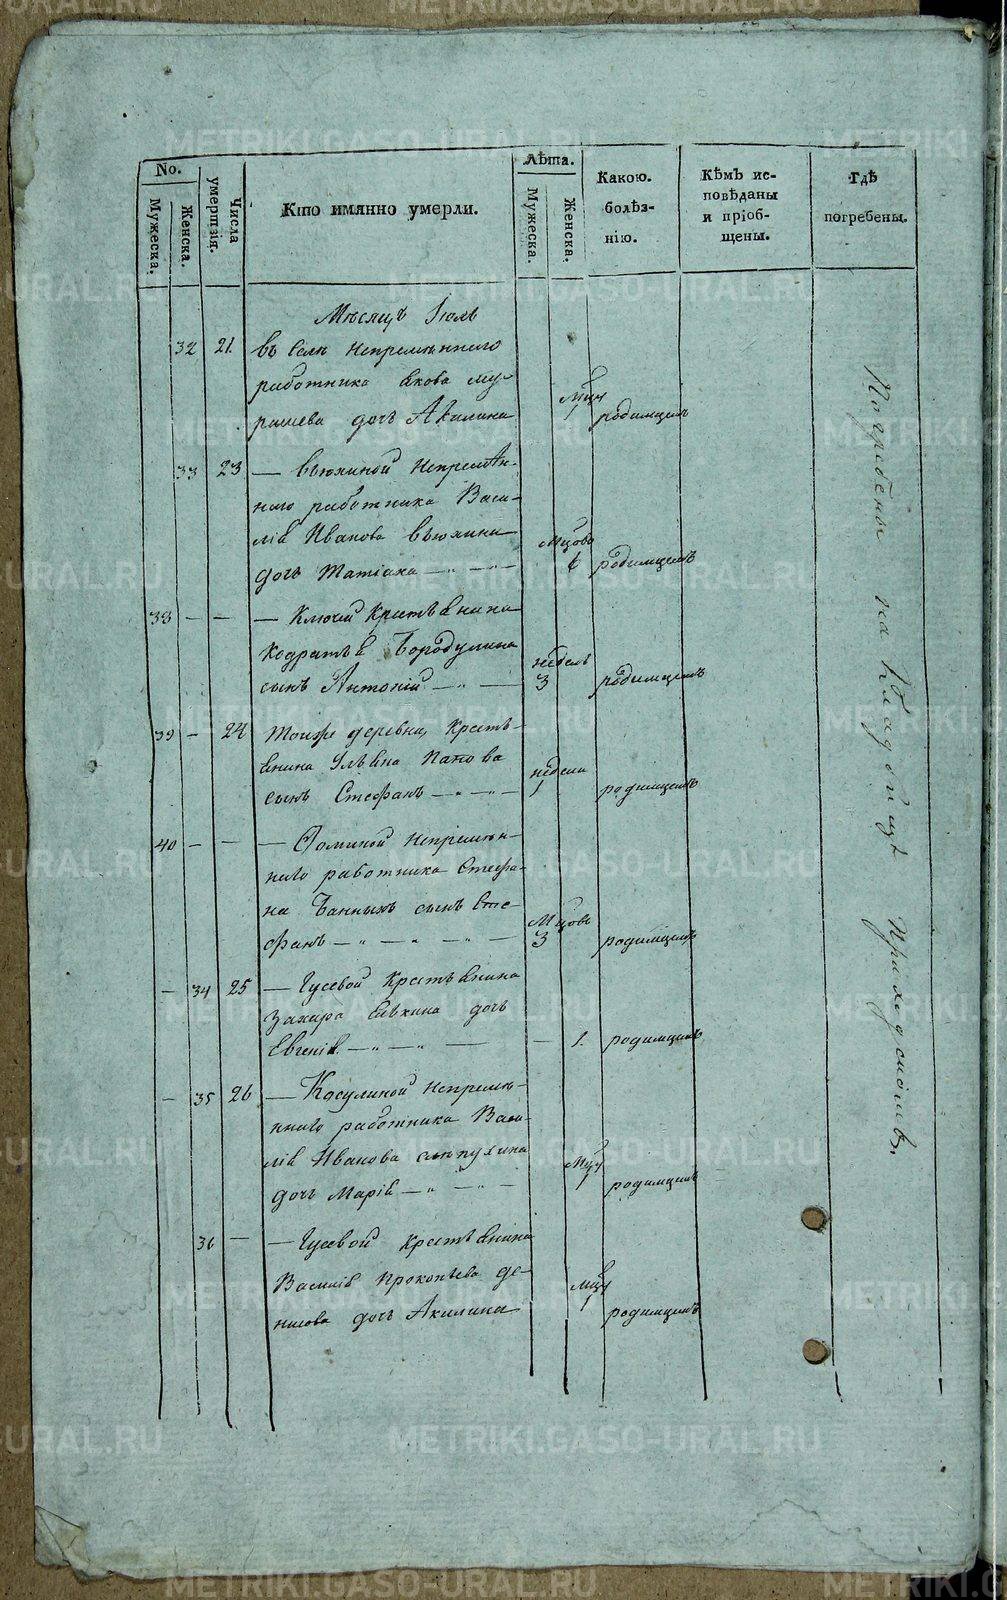 No.
Мужеска.
Женска.
Числа умертвія.
Кто имянно умерли.
Лѣта.
Мужеска.
Женска.
Какою.
болѣз-
нію.
Кѣмъ ис-
повѣданы
и пріоб-
щены.
Гдѣ
погребены.
Мѣсяцъ Іюль
32 21. въ селѣ Непремѣннаго
работника
дочь Акилина
1 родимцемъ
33 23 — Вьюхиной Непремѣн-
наго работника Васи-
лія Иванова Вьюхина
дочь Татіана — „ — „ —
6 родимцемъ
38 — — — Ключей Крестьянина
Кодратья Бородулина
сынъ Антоній — „ —
недель
3 родимцемъ
39 — 24 тойже деревни, Кресть-
янина Ульяна Папова
сынъ Стефанъ — „ — „ —
недели
1 родимцемъ
40 — — — Фоминой Непремѣн-
наго работника Стефа-
на Банныхъ сынъ Сте-
фанъ — „ — „ — „ —
Мцовъ
3 родимцемъ
— 34 25 — Гусевой Крестьянина
Захара дочь
Евгенія — „ — „ —
— 1. родимцемъ
— 35 26 — Косулиной Непремѣ-
ннаго работника Васи-
лія Иванова слѣпухина
дочь Марія — „ — „ —
1 родимцемъ
36 — — Гусевой Крестьянина
Василія Прокопьева де-
нисова дочь Акилина
1 родимцемъ
Погребены на Кладбищѣ Приходскомъ.
METRIKI.GASO-URAL.RU